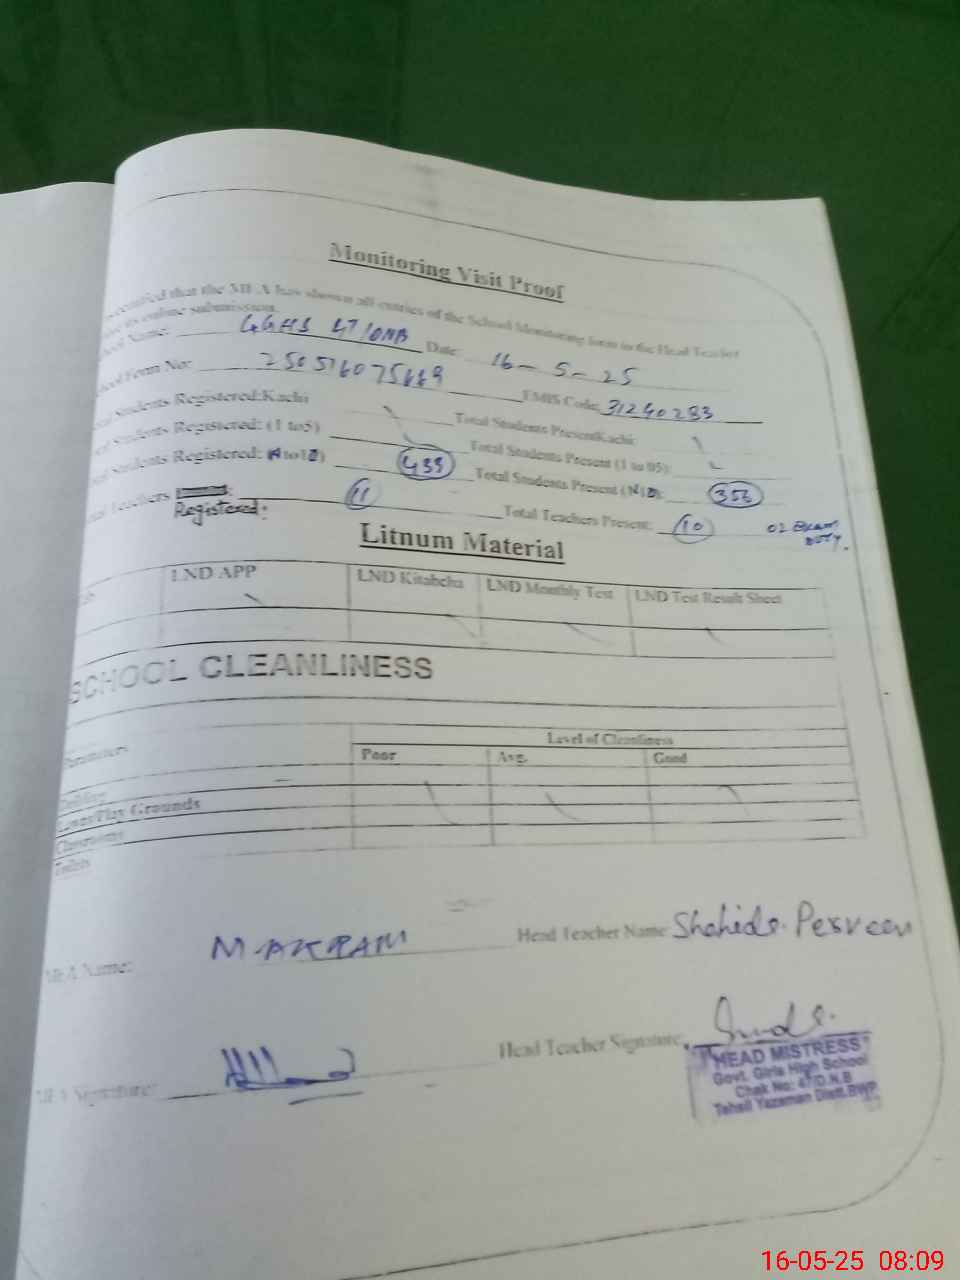 Monitoring Visit Proof
that the MEA has shown all entries of the School Monitoring form to the Head Teacher
online submission.
Name: GGHS 47/DNB Date: 16-5-25
Form No: EMIS Code: 31240283
Students Registered:Kachi Total Students PresentKachi
Students Registered: (1 to5) Total Students Present (1 to 05):
Students Registered: (N to10) 433 Total Students Present (N
356
Teachers Registered: 11 Total Teachers Present: 10 02 Exam DUTY.
Litnum Material
LND APP LND Kitabcha LND Monthly Test LND Test Result Sheet
SCHOOL CLEANLINESS
Parameters Level of Cleanliness
Poor Avg. Good
Building
Lawns/Play Grounds
Classrooms
Toilets
MEA Name: M-AKRAM Head Teacher Name Shahida Perveen
MEA Signature: Head Teacher Signature
HEAD MISTRESS
Govt. Girls High School
Chak No: 47/D.N.B
Tehsil Yazman Distt.Bwp
16-05-25 08:09